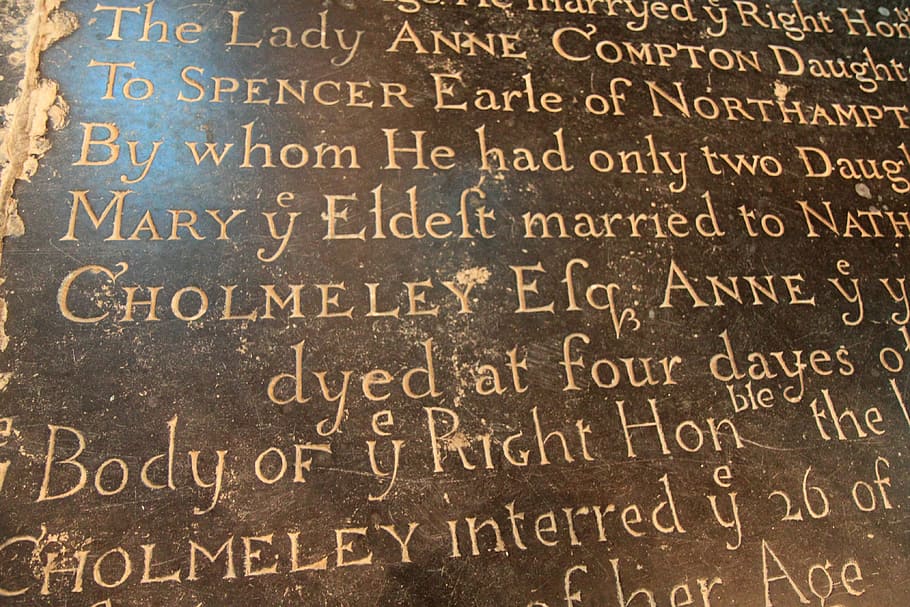 He marryed yͤ Right Honᵇˡ
The Lady ANNE COMPTON Daught
To SPENCER Earle of NORTHAMPT
By whom He had only two Daug
MARY yͤ Eldeſt married to NATH
CHOLMELEY Eſqꝫ ANNE yͤ y
dyed at four dayes ol
Body OF yͤ RigHt Honᵇˡᵉ the
CHOLMELEY interred yͤ 26 of
of her Age